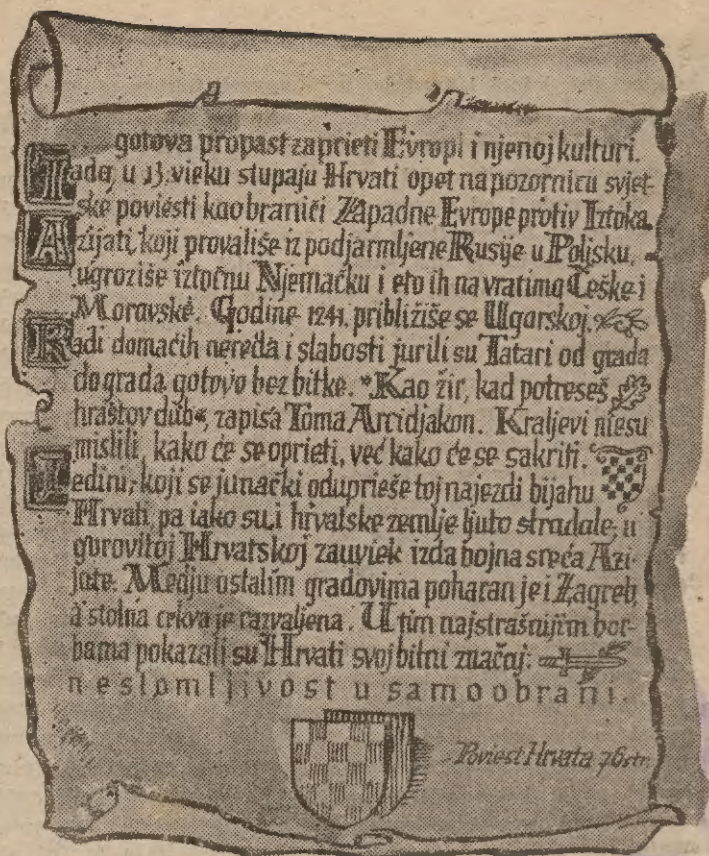 gotova propast zaprieti Evropi i njenoj kulturi.
Tada, u 13. vieku stupaju Hrvati opet na pozornicu svjet-
ske poviesti kao branići Zapadne Evrope protiv Iztoka.
Azijati, koji provališe iz podjarmljene Rusije u Poljsku,
ugroziše iztočnu Njemačku i eto ih na vratima Češke i
Moravske. Godine 1241. približiše se Ugarskoj.
Radi domaćih nereda i slabosti jurili su Tatari od grada
do grada gotovo bez bitke. "Kao žir, kad potreseš
hrastov dub", zapisa Toma Arcidjakon. Kraljevi niesu
mislili, kako će se oprieti, već kako će se sakriti.
Jedini, koji se junački oduprieše toj najezdi bijahu
Hrvati, pa iako su i hrvatske zemlje ljuto stradale, u
gorovitoj Hrvatskoj zauviek izda bojna sreća Azi-
jate. Medju ostalim gradovima poharan je i Zagreb,
a stolna crkva je razvaljena. U tim najstrašnijim bor-
bama pokazali su Hrvati svoj bitni značaj:
neslomljivost u samoobrani.
Poviest Hrvata 76 str.